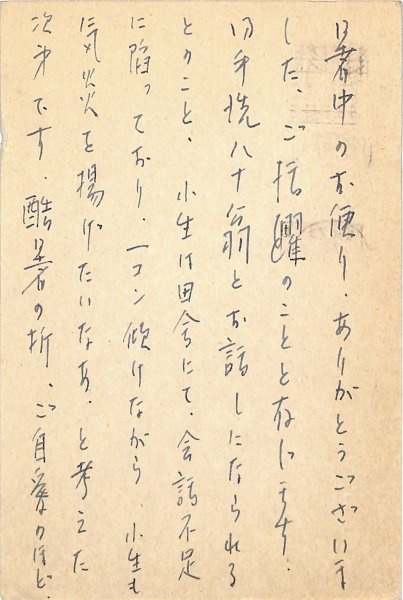 暑中のお便り、ありがとうございま
した、ご活躍のことと存じます。
御手洗八十翁とお話しになられる
とのこと、小生は田舎にて、会話不足
に陥っており、一コン傾けながら、小生も
気炎を揚げたいなあ、と考えた
次第です、酷暑の折、ご自愛のほど、